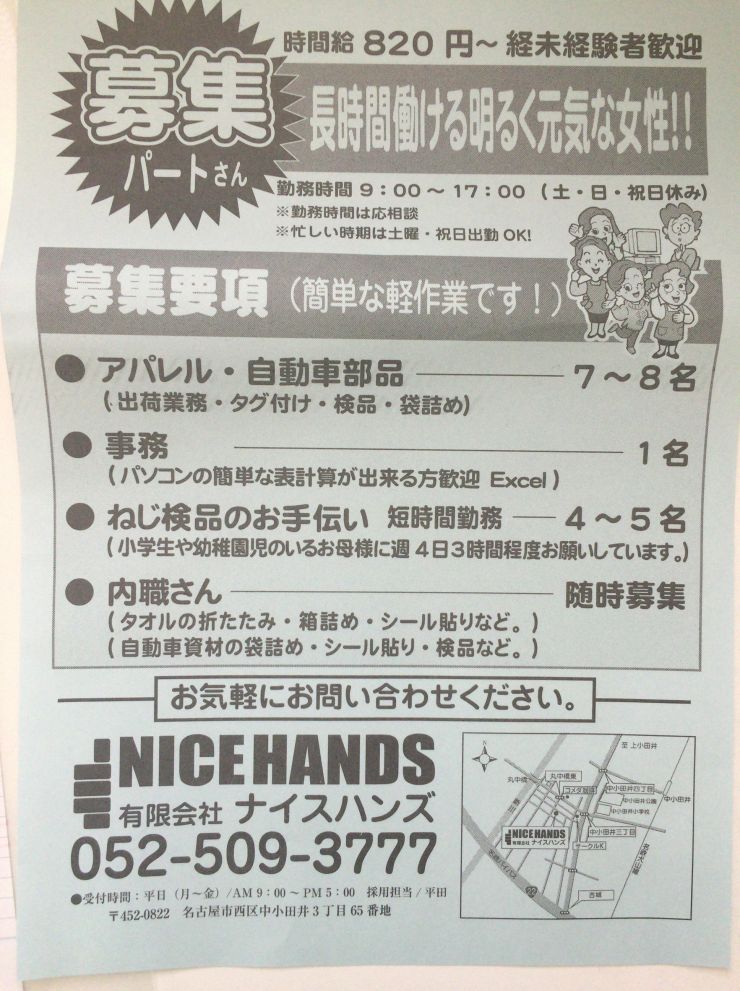 募集
パートさん
時間給 820 円〜 経未経験者歓迎
長時間働ける明るく元気な女性!!
勤務時間 9:00 〜 17:00 (土・日・祝日休み)
※勤務時間は応相談
※忙しい時期は土曜・祝日出勤 OK!
募集要項 (簡単な軽作業です!)
● アパレル・自動車部品 7〜8名
(出荷業務・タグ付け・検品・袋詰め)
● 事務 1名
(パソコンの簡単な表計算が出来る方歓迎 Excel)
● ねじ検品のお手伝い 短時間勤務 4〜5名
(小学生や幼稚園児のいるお母様に週4日3時間程度お願いしています。)
● 内職さん 随時募集
(タオルの折たたみ・箱詰め・シール貼りなど。)
(自動車資材の袋詰め・シール貼り・検品など。)
お気軽にお問い合わせください。
NICE HANDS
有限会社 ナイスハンズ
052-509-3777
●受付時間:平日(月〜金)/AM 9:00〜PM 5:00 採用担当/平田
〒452-0822 名古屋市西区中小田井3丁目65番地
N
至 上小田井
丸中橋
丸中橋東
コメダ珈琲
中小田井四丁目
中小田井公園
中小田井小学校
中小田井
NICE HANDS
有限会社 ナイスハンズ
中小田井三丁目
サークルK
名鉄犬山線
22
古城